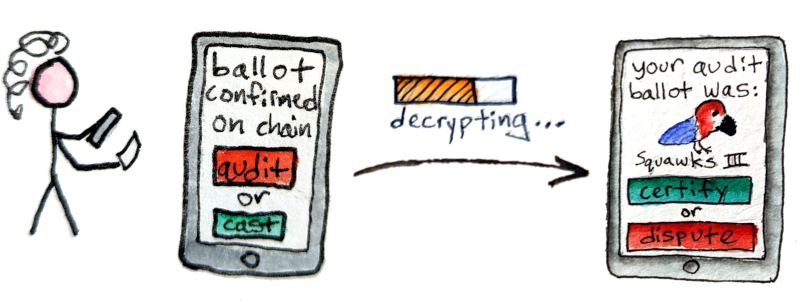 ballot
confirmed
on chain
audit
or
cast
decrypting...
your audit
ballot was:
Squawks III
certify
or
dispute